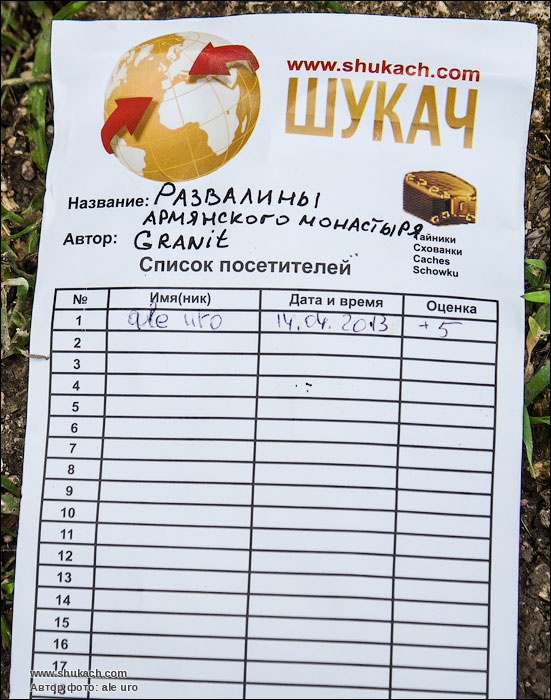 www.shukach.com
ШУКАЧ
Название: РАЗВАЛИНЫ
АРМЯНСКОГО МОНАСТЫРЯ
Автор: GRANit
Тайники
Схованки
Caches
Schowku
Список посетителей
№ Имя(ник) Дата и время Оценка
1 ale uro 14.04.2013 +5
2
3
4
5
6
7
8
9
10
11
12
13
14
15
16
17
18
www.shukach.com
Автор фото: ale uro